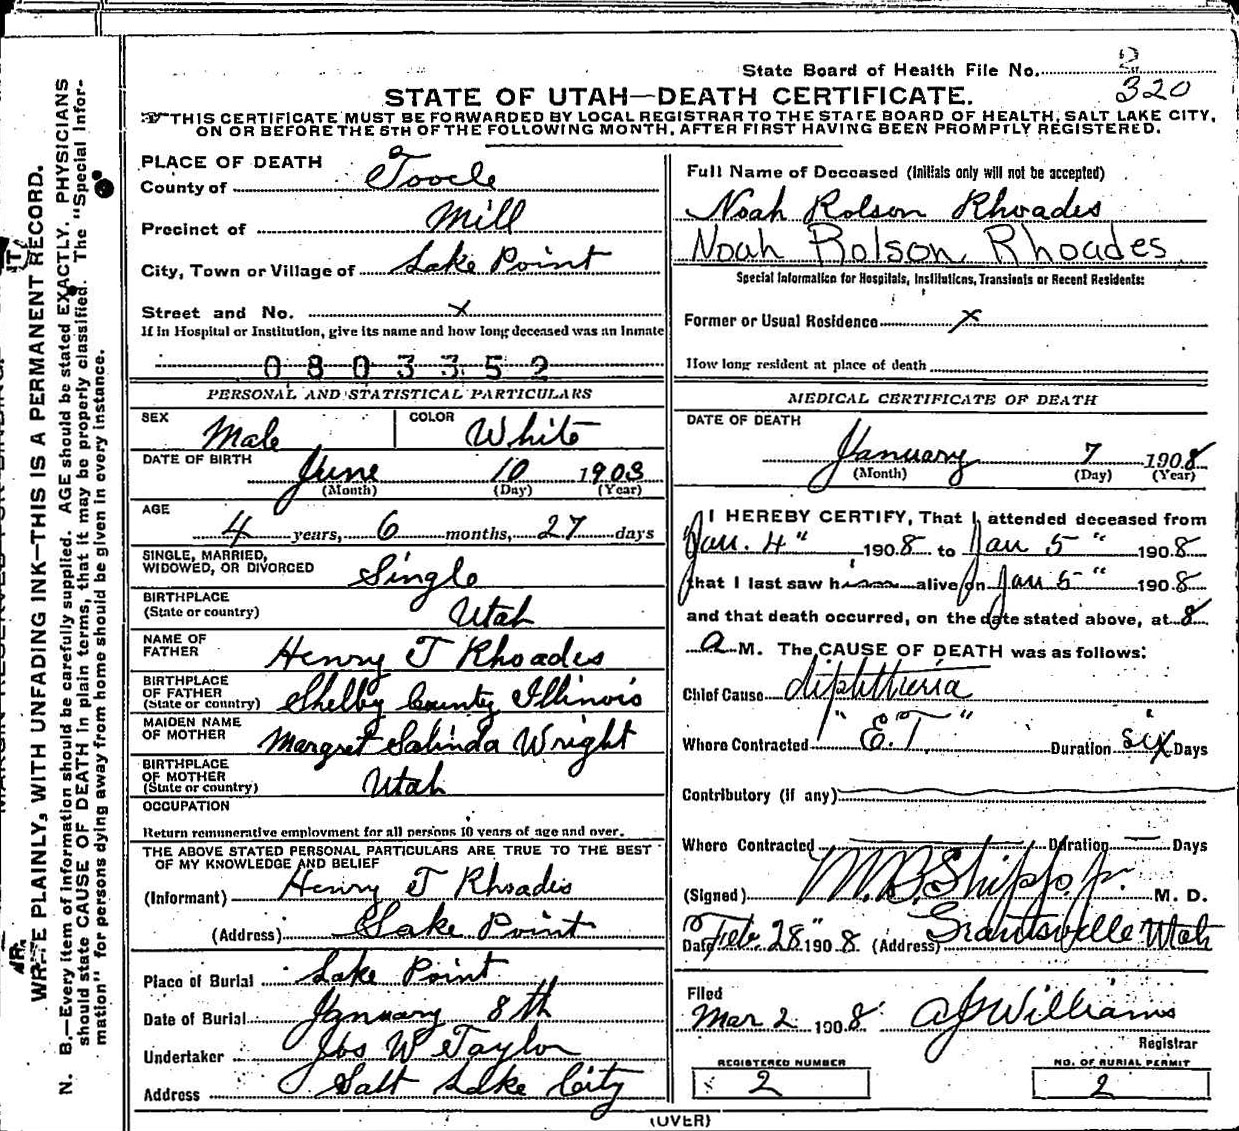 State Board of Health File No.
320
STATE OF UTAH—DEATH CERTIFICATE.
THIS CERTIFICATE MUST BE FORWARDED BY LOCAL REGISTRAR TO THE STATE BOARD OF HEALTH, SALT LAKE CITY,
ON OR BEFORE THE 5TH OF THE FOLLOWING MONTH, AFTER FIRST HAVING BEEN PROMPTLY REGISTERED.
WRITE PLAINLY, WITH UNFADING INK—THIS IS A PERMANENT RECORD.
N. B.—Every item of information should be carefully supplied. AGE should be stated EXACTLY. PHYSICIANS
should state CAUSE OF DEATH in plain terms, that it may be properly classified. The "Special Infor-
mation" for persons dying away from home should be given in every instance.
PLACE OF DEATH
County of Tooele
Precinct of Mill
City, Town or Village of Lake Point
Street and No. x
If in Hospital or Institution, give its name and how long deceased was an inmate
0803352
PERSONAL AND STATISTICAL PARTICULARS
SEX Male COLOR White
DATE OF BIRTH June 10 1903
(Month) (Day) (Year)
AGE 4 years, 6 months, 27 days
SINGLE, MARRIED,
WIDOWED, OR DIVORCED Single
BIRTHPLACE
(State or country) Utah
NAME OF
FATHER Henry T Rhoades
BIRTHPLACE
OF FATHER
(State or country) Shelby County Illinois
MAIDEN NAME
OF MOTHER Margret Salinda Wright
BIRTHPLACE
OF MOTHER
(State or country) Utah
OCCUPATION
Return remunerative employment for all persons 10 years of age and over.
THE ABOVE STATED PERSONAL PARTICULARS ARE TRUE TO THE BEST
OF MY KNOWLEDGE AND BELIEF
(Informant) Henry T Rhoades
(Address) Lake Point
Place of Burial Lake Point
Date of Burial January 8th
Undertaker Jos W Taylor
Address Salt Lake City
Full Name of Deceased (Initials only will not be accepted)
Noah Rolson Rhoades
Noah Rolson Rhoades
Special Information for Hospitals, Institutions, Transients or Recent Residents:
Former or Usual Residence x
How long resident at place of death
MEDICAL CERTIFICATE OF DEATH
DATE OF DEATH
January 7 1908
(Month) (Day) (Year)
I HEREBY CERTIFY, That I attended deceased from
Jan. 4" 1908 to Jan 5" 1908
that I last saw him alive on Jan 5" 1908
and that death occurred, on the date stated above, at 8
a M. The CAUSE OF DEATH was as follows:
Chief Cause diphtheria
Where Contracted "E.T." Duration six Days
Contributory (if any)
Where Contracted Duration — Days
(Signed) M.D. Shipp, Jr. M. D.
Date Feb 28" 1908 (Address) Grantsville Utah
Filed
Mar 2 1908 A J Williams
Registrar
REGISTERED NUMBER
2
NO. OF BURIAL PERMIT
2
(OVER)